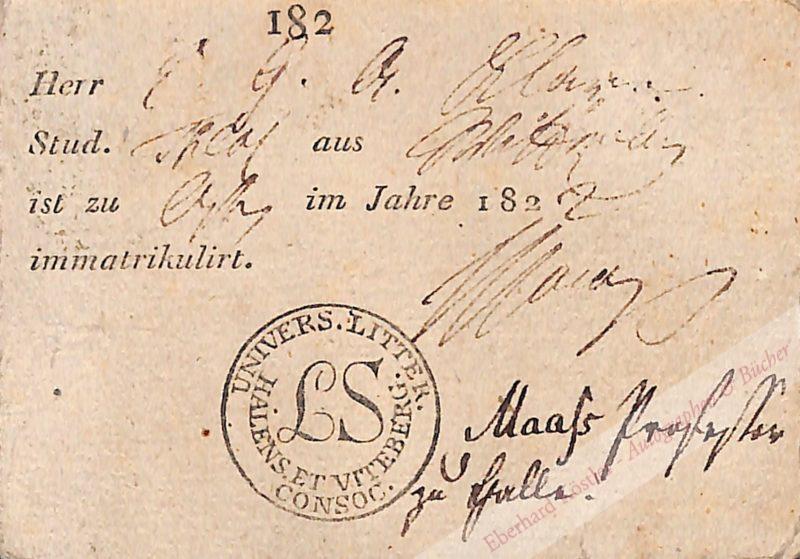 182
Herr G. A.
Stud. Theol aus
ist zu im Jahre 1822
immatrikulirt.
Maaß
UNIVERS. LITTER.
HALENS. ET VITEBERG.
CONSOC.
LS
Maaß Professor
zu Halle.
Eberhard Köstler - Autographen & Bücher